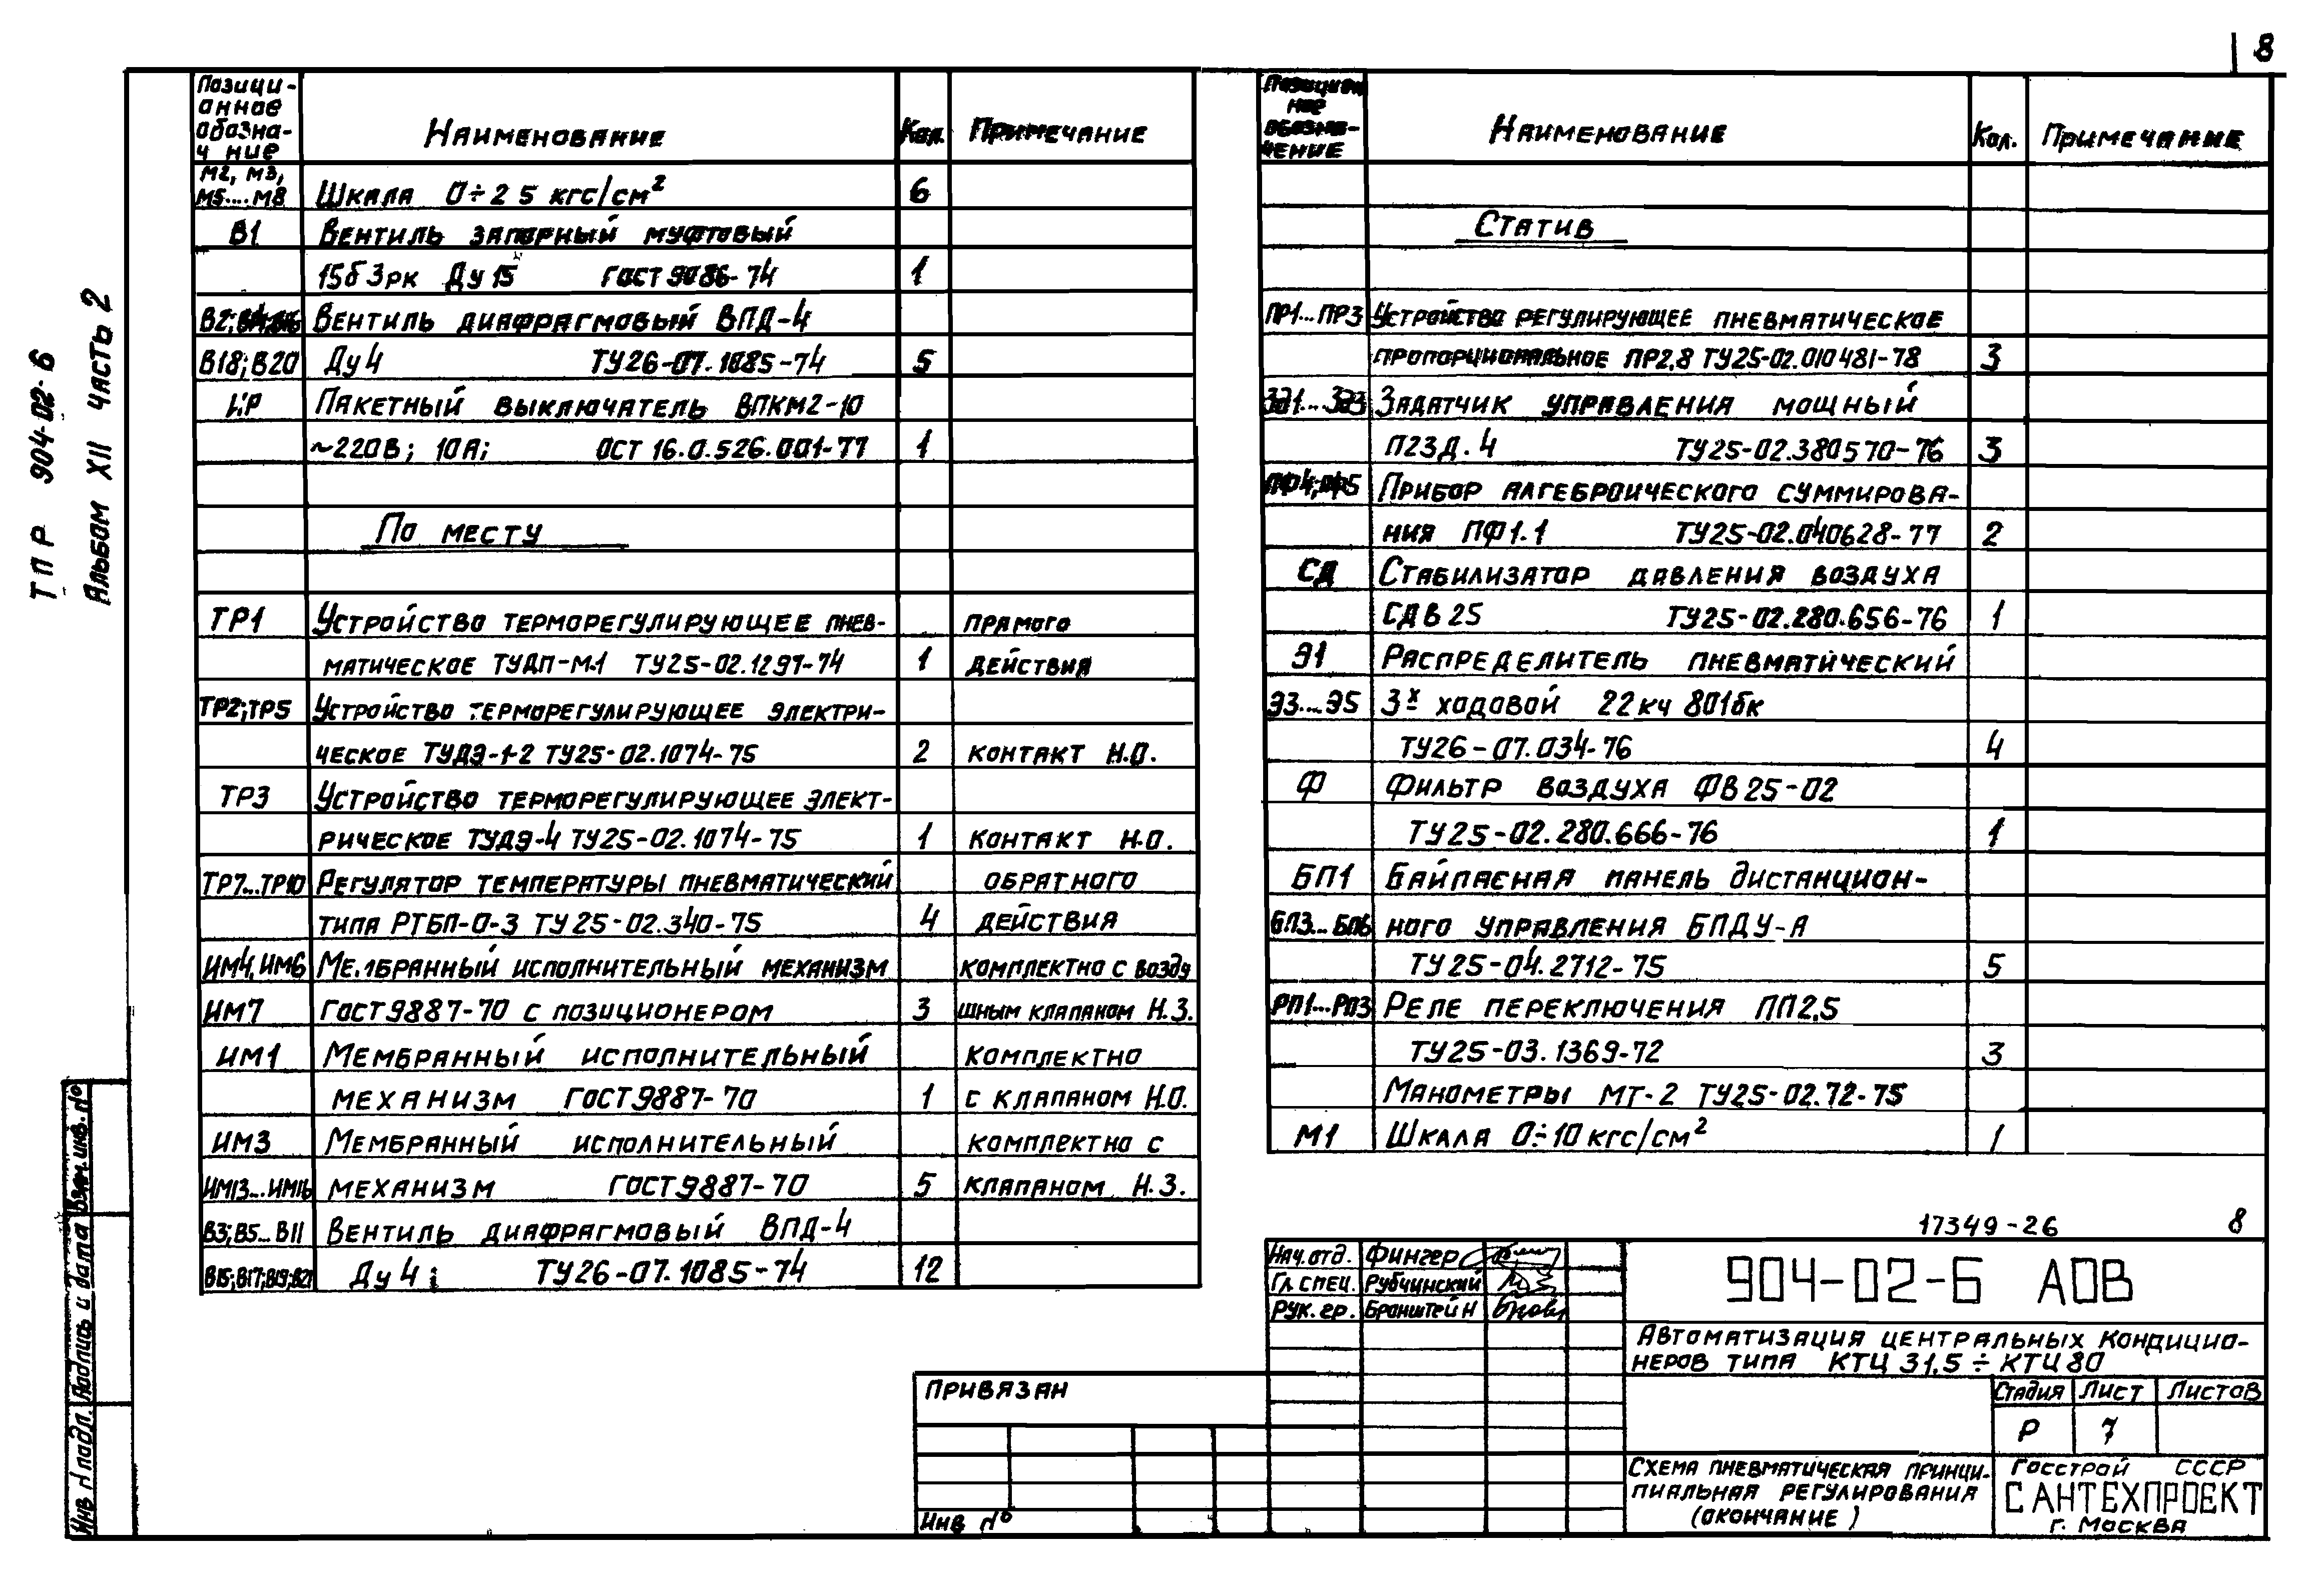 8
ТПР 904-02-6
Альбом XII часть 2
Позици-
онное
обозна-
чение
Наименование
Кол.
Примечание
М2, М3,
М5....М8 Шкала 0÷25 кгс/см² 6
В1 Вентиль запорный муфтовый
15б3рк Ду15 ГОСТ 9086-74 1
Вентиль диафрагмовый ВПД-4
В18; В20 Ду4 ТУ26-07.1085-74 5
Пакетный выключатель ВПКМ2-10
~220В; 10А; ОСТ 16.0.526.001-77 1
По месту
ТР1 Устройство терморегулирующее пнев- прямого
матическое ТУДП-М1 ТУ25-02.1297-74 1 действия
ТР2; ТР5 Устройство терморегулирующее электри-
ческое ТУДЭ-1-2 ТУ25-02.1074-75 2 контакт Н.О.
ТР3 Устройство терморегулирующее элект-
рическое ТУДЭ-4 ТУ25-02.1074-75 1 контакт Н.О.
ТР7...ТР10 Регулятор температуры пневматический обратного
типа РТБП-0-3 ТУ25-02.340-75 4 действия
ИМ4, ИМ6 Мембранный исполнительный механизм комплектно с возду
ИМ7 ГОСТ 9887-70 с позиционером 3 шным клапаном Н.З.
ИМ1 Мембранный исполнительный комплектно
механизм ГОСТ 9887-70 1 с клапаном Н.О.
ИМ3 Мембранный исполнительный комплектно с
ИМ13...ИМ16 механизм ГОСТ 9887-70 5 клапаном Н.З.
В3; В5...В11 Вентиль диафрагмовый ВПД-4
В15; В17; В19; В21 Ду 4; ТУ26-07.1085-74 12
Позицион
ное
обозна-
чение
Наименование
Кол.
Примечание
Статив
ПР1...ПР3 Устройство регулирующее пневматическое
пропорциональное ПР2,8 ТУ25-02.010481-78 3
Зд1...Зд3 Задатчик управления мощный
П23Д.4 ТУ25-02.380570-76 3
Прибор алгеброического суммирова-
ния ПФ1.1 ТУ25-02.040628-77 2
СД Стабилизатор давления воздуха
СДВ 25 ТУ25-02.280.656-76 1
Э1 Распределитель пневматический
Э3....Э5 3х ходовой 22кч 801бк
ТУ26-07.034-76 4
Ф Фильтр воздуха ФВ25-02
ТУ25-02.280.666-76 1
БП1 Байпасная панель дистанцион-
БП3...БП6 ного управления БПДУ-А
ТУ25-04.2712-75 5
РП1...РП3 Реле переключения ПП2,5
ТУ25-03.1369-72 3
Манометры МТ-2 ТУ25-02.72-75
М1 Шкала 0÷10 кгс/см² 1
17349-26 8
Нач.отд. Фингер
Гл спец. Рубчинский
Рук. гр. Бронштейн
904-02-6 АОВ
Автоматизация центральных кондицио-
неров типа КТЦ 31,5 ÷ КТЦ 80
Стадия Лист Листов
Р 7
Схема пневматическая принци-
пиальная регулирования
(окончание)
Госстрой СССР
САНТЕХПРОЕКТ
г. Москва
Привязан
Инв №
Взам. инв. №
Подпись и дата
Инв № подл.